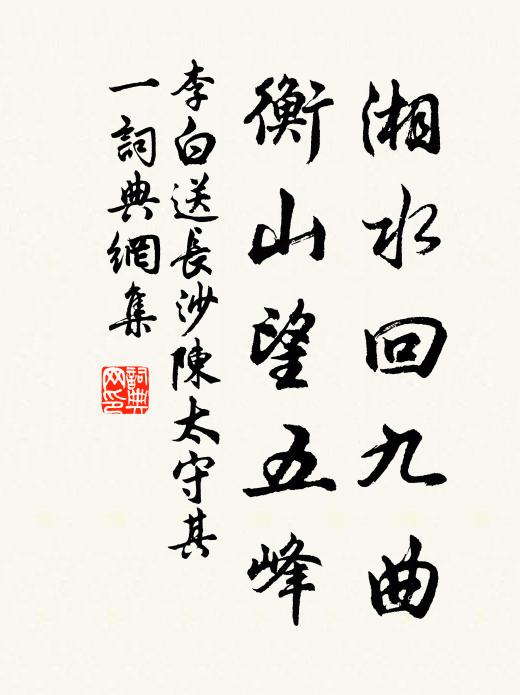 湘水回九曲
衡山望五峰
李白送長沙陳太守其
一詞典網集
詞典网印